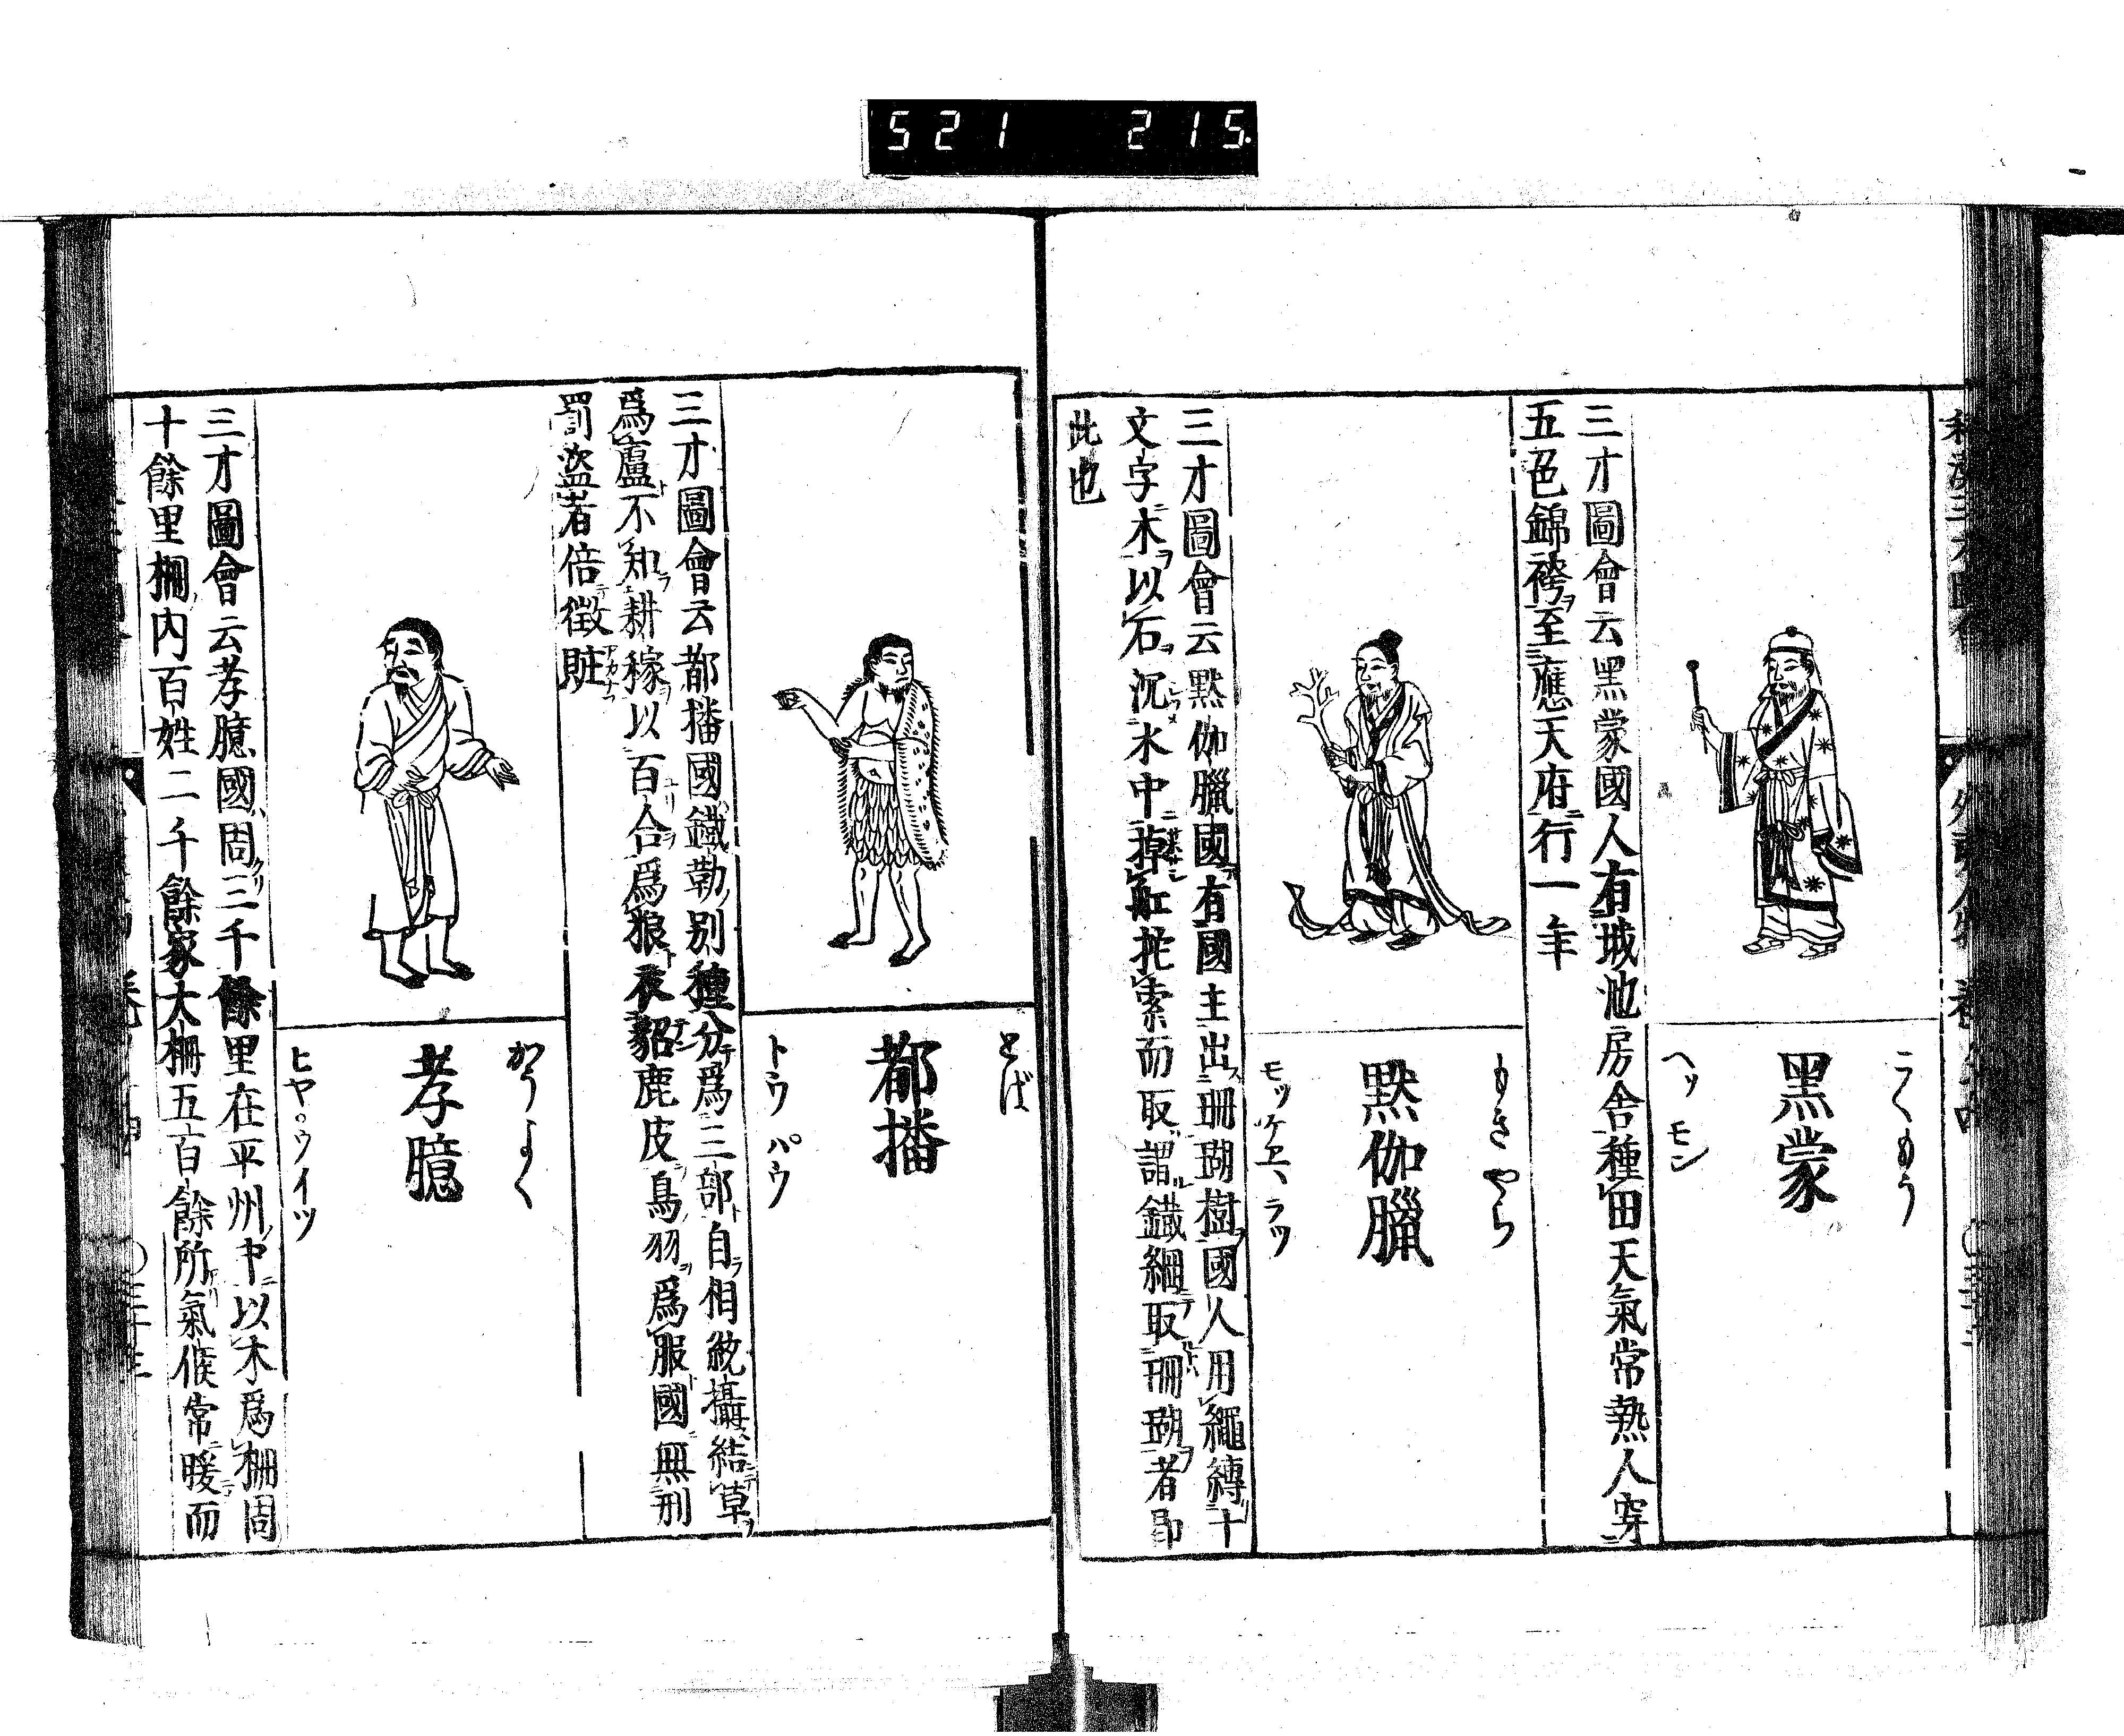 521 215.
こくもう
黑蒙
ヘッモン
三才圖會云黑蒙國人有城池房舍種田天氣常熱人穿
五色錦袴ヲ至應天府ニ行一年
もきやら
黙伽臘
三才圖會云黙伽臘國有國主出珊瑚樹國人用繩縛十
文字木ヲ以石ヲ沉水中ニ掉舡拕索而取謂鐵綱取珊瑚者即
此也
とば
都播
トウパウ
三才圖會云都播國鐵勒別種分爲三部自相統攝結草
爲廬不知耕稼以百合爲粮衣貂鹿皮鳥羽爲服國無刑
罰盜者倍徵賍
かうよく
孝臆
ヒヤ。ウイツ
三才圖會云孝臆國周三千餘里在平州中以木爲柵周
十餘里柵内百姓二千餘家大柵五百餘所氣候常暖而